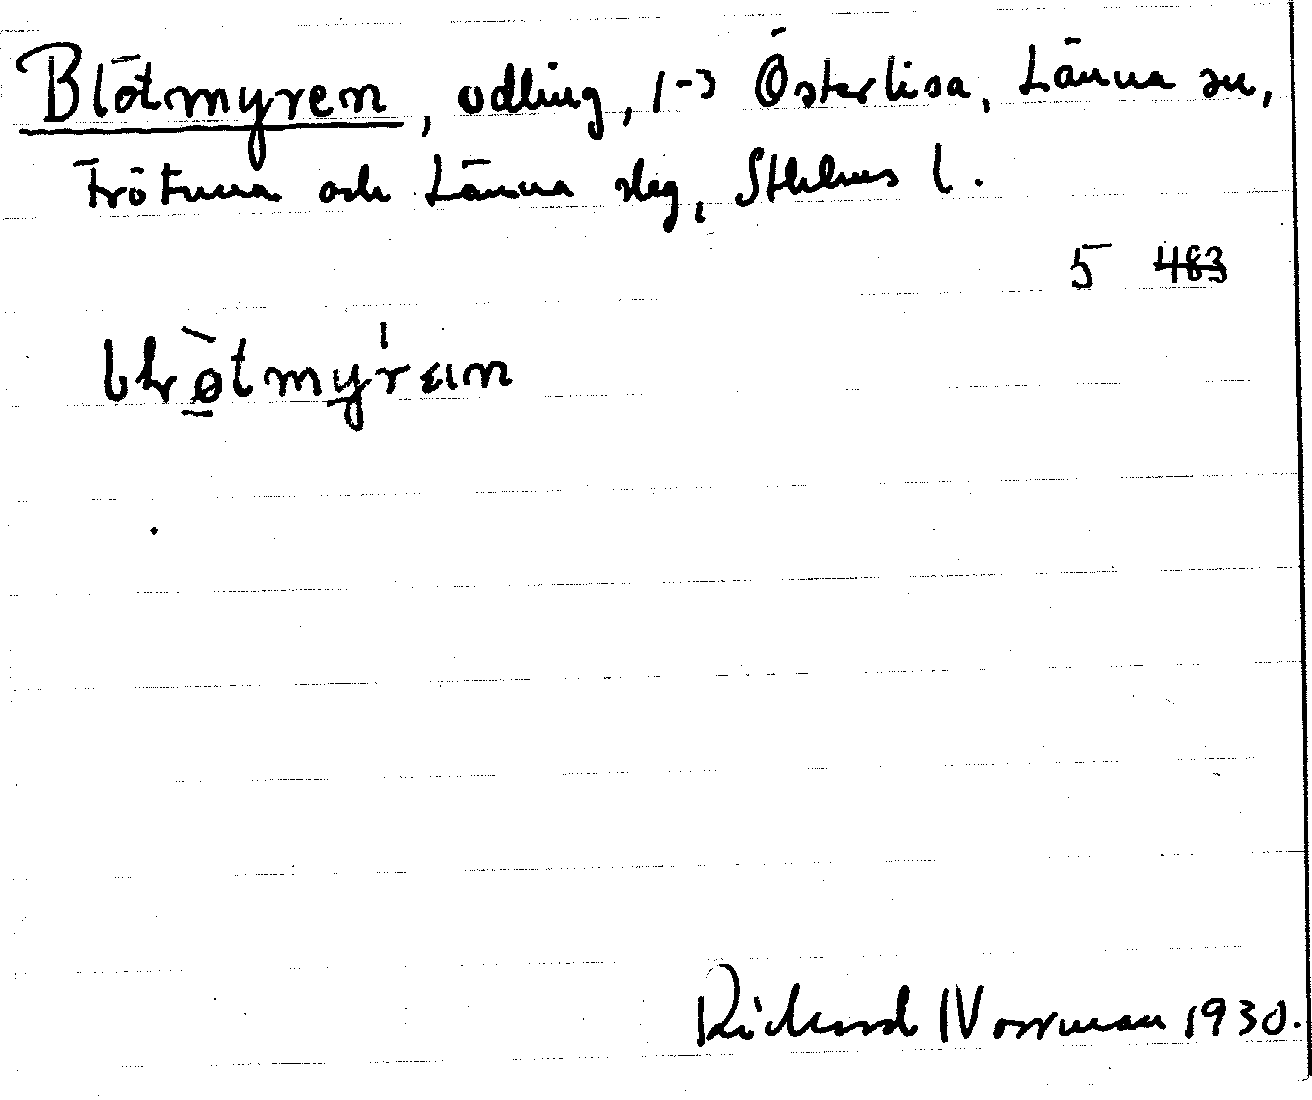 Blötmyren, odling, 1-3 Österlisa, Länna sn,
Frötuna och Länna slag, Sthlms l.
5 483
Rickard Norrman 1930.